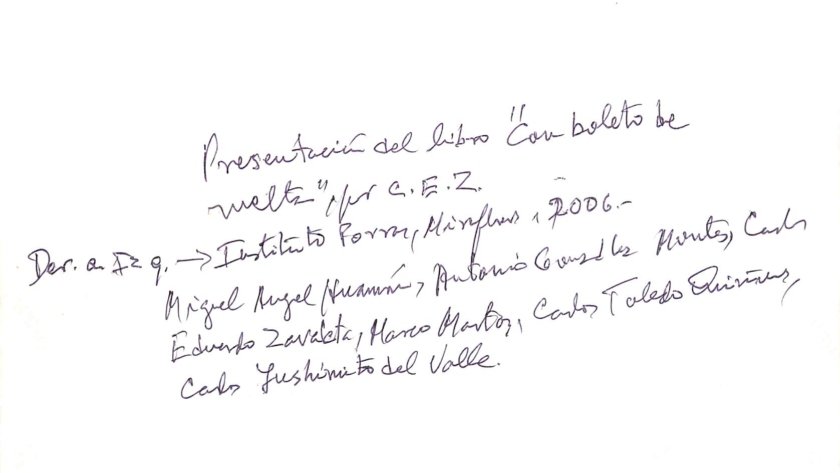 Presentación del libro "Con boleto de
vuelta", por C. E. Z.
Der. a Izq. → Instituto Porras, Miraflores, 2006.-
Miguel Angel Huamán, Antonio González Montes, Carlos
Eduardo Zavaleta, Marco Martos, Carlos Toledo Quiñones,
Carlos Yushimito del Valle.